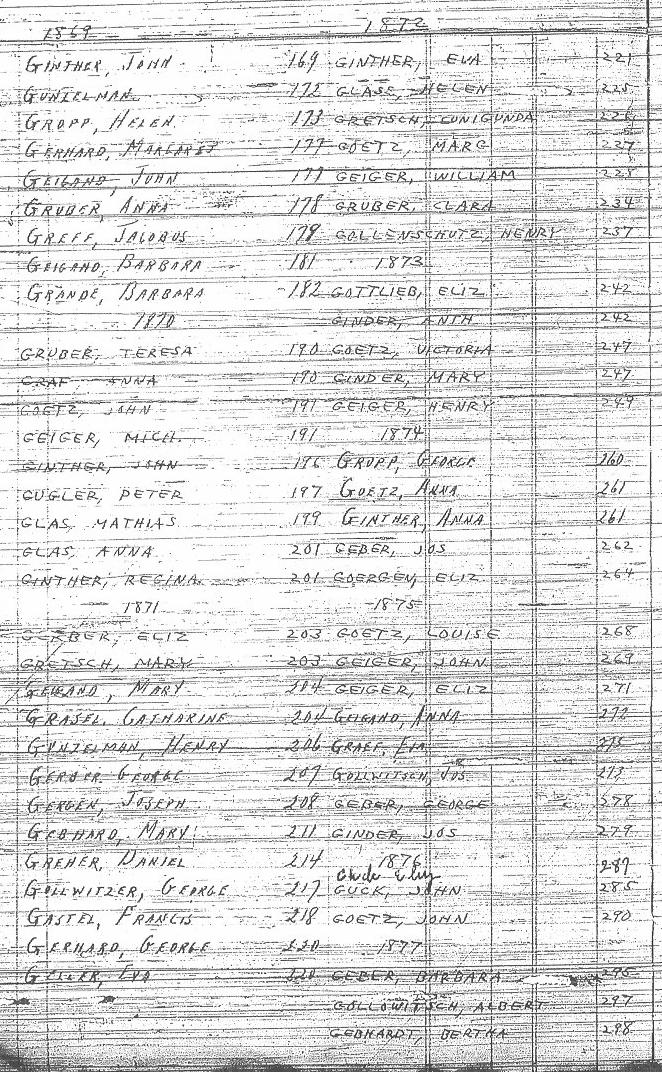 1869
GINTHER, JOHN 169
GUNZELMAN 172
GROPP, HELEN 173
GERHARD, MARGARET 177
GEIGAND, JOHN 177
GRUBER, ANNA 178
GREFF, JACOBUS 179
GEIGAND, BARBARA 181
GRANDE, BARBARA 182
1870
GRUBER, TERESA 190
GRAF, ANNA 190
GOETZ, JOHN 191
GEIGER, MICH. 191
GINTHER, JOHN 196
GUGLER, PETER 197
GLAS, MATHIAS 199
GLAS, ANNA 201
GINTHER, REGINA 201
1871
GERBER, ELIZ 203
GRETSCH, MARY 203
GEIGAND, MARY 204
GRASEL, CATHARINE 204
GUNZELMAN, HENRY 206
GERBER GEORGE 207
GERGEN, JOSEPH 208
GEBHARD, MARY 211
GREHER, DANIEL 214
GOLLWITZER, GEORGE 217
GASTEL, FRANCIS 218
GERHARD, GEORGE 220
GELLER, EVA 220
1872
GINTHER, EVA 221
GLASE, HELEN 225
GRETSCH, CUNIGUNDA 226
GOETZ, MARG 227
GEIGER, WILLIAM 228
GRUBER, CLARA 234
GOLLENSCHUTZ, HENRY 237
1873
GOTTLIEB, ELIZ 242
GINDER, ANTH 242
GOETZ, VICTORIA 247
GINDER, MARY 247
GEIGER, HENRY 249
1874
GROPP, GEORGE 260
GOETZ, ANNA 261
GINTHER, ANNA 261
GEBER, JOS 262
GOERGEN, ELIZ 264
1875
GOETZ, LOUISE 268
GEIGER, JOHN 269
GEIGER, ELIZ 271
GEIGAND, ANNA 272
GRAEF, 275
GOLLWITSCH, JOS 273
GEBER, GEORGE 278
GINDER, JOS 279
1876
287
GUCK, JOHN 285
GOETZ, JOHN 290
1877
GEBER, BARBARA 295
GOLLOWITSCH, ALBERT 297
GEBHARDT, BERTHA 298